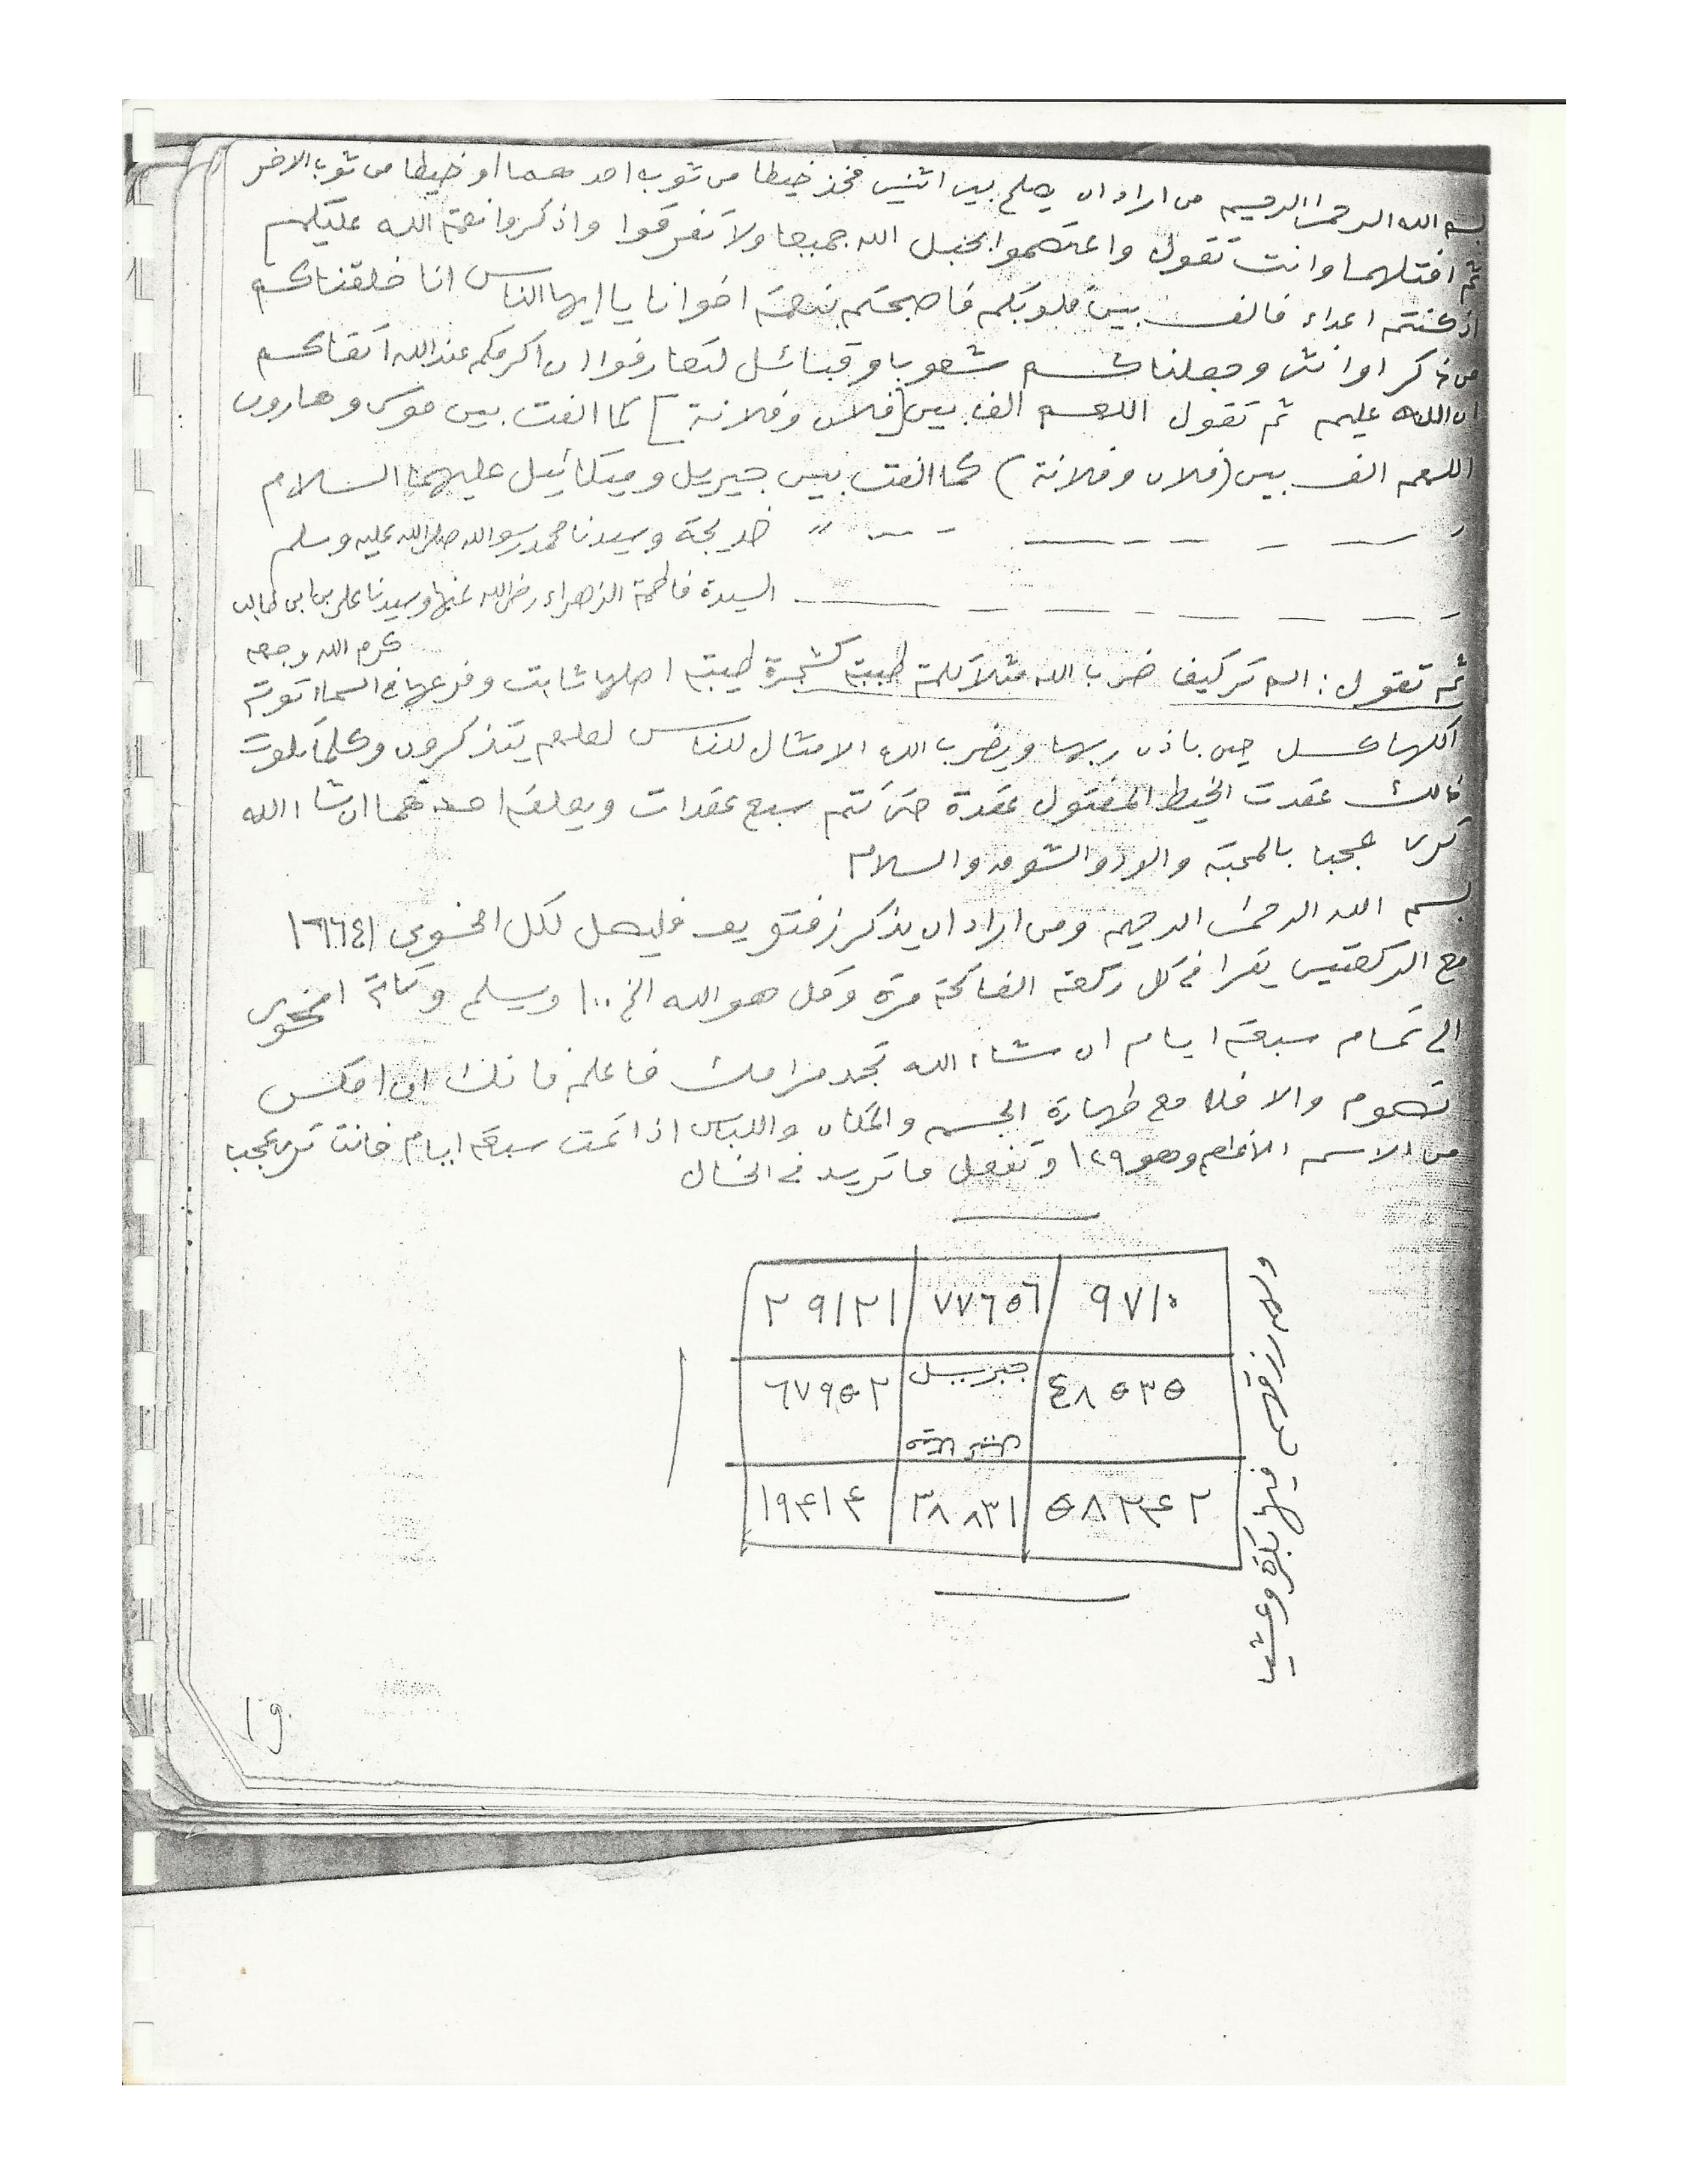 بسم الله الرحمن الرحيم من اراد ان يصلح بين اثنين فخذ خيطا من ثوب احدهما او خيطا من ثوب الاخر
ثم افتلهما وانت تقول واعتصموا بحبل الله جميعا ولا تفرقوا واذكروا نعمة الله عليكم
اذ كنتم اعداء فالف بين قلوبكم فاصبحتم بنعمته اخوانا يا ايها الناس انا خلقناكم
من ذكر او انثى وجعلناكم شعوبا وقبائل لتعارفوا ان اكرمكم عند الله اتقاكم
ان الله عليم ثم تقول اللهم الف بين [فلان وفلانة] كما الفت بين موسى وهارون
اللهم الف بين (فلان وفلانة) كما الفت بين جبريل وميكائيل عليهما السلام
خديجة وسيدنا محمد رسول الله صلى الله عليه وسلم
السيدة فاطمة الزهراء رضي الله عنها وسيدنا علي بن ابي طالب
كرم الله وجهه
ثم تقول : الم تر كيف ضرب الله مثلا كلمة طيبة كشجرة طيبة اصلها ثابت وفرعها في السماء تؤتي
اكلها كل حين باذن ربها ويضرب الله الامثال للناس لعلهم يتذكرون وكلما تلوت
ذالك عقدت الخيط المفتول عقدة حتى تتم سبع عقدات ويعلقه احدهما ان شاء الله
ترى عجبا بالمحبة والود والشوق والسلام
بسم الله الرحمن الرحيم ومن اراد ان يذكر فليصل لكل ١٦٦٤١
مع الركعتين يقرا في كل ركعة الفاتحة مرة وقل هو الله الخ ١٠٠ ويسلم
الى تمام سبعة ايام ان شاء الله تجد مرامك فاعلم فانك ان امكن
تصوم والا فلا مع طهارة الجسم والمكان واللباس اذا تمت سبعة ايام فانت ترى عجبا
من الاسم الاعظم وهو ١٢٩ وتفعل ما تريد في الحال
٩٧١٠ ٧٧٦٥٦ ٢٩١٢١
٤٨٥٣٥ جبريل ٦٧٩٥٢
٥٨٢٤٢ ٣٨٨٣١ ١٩٤١٤
ولهم رزقهم فيها بكرة وعشيا
19